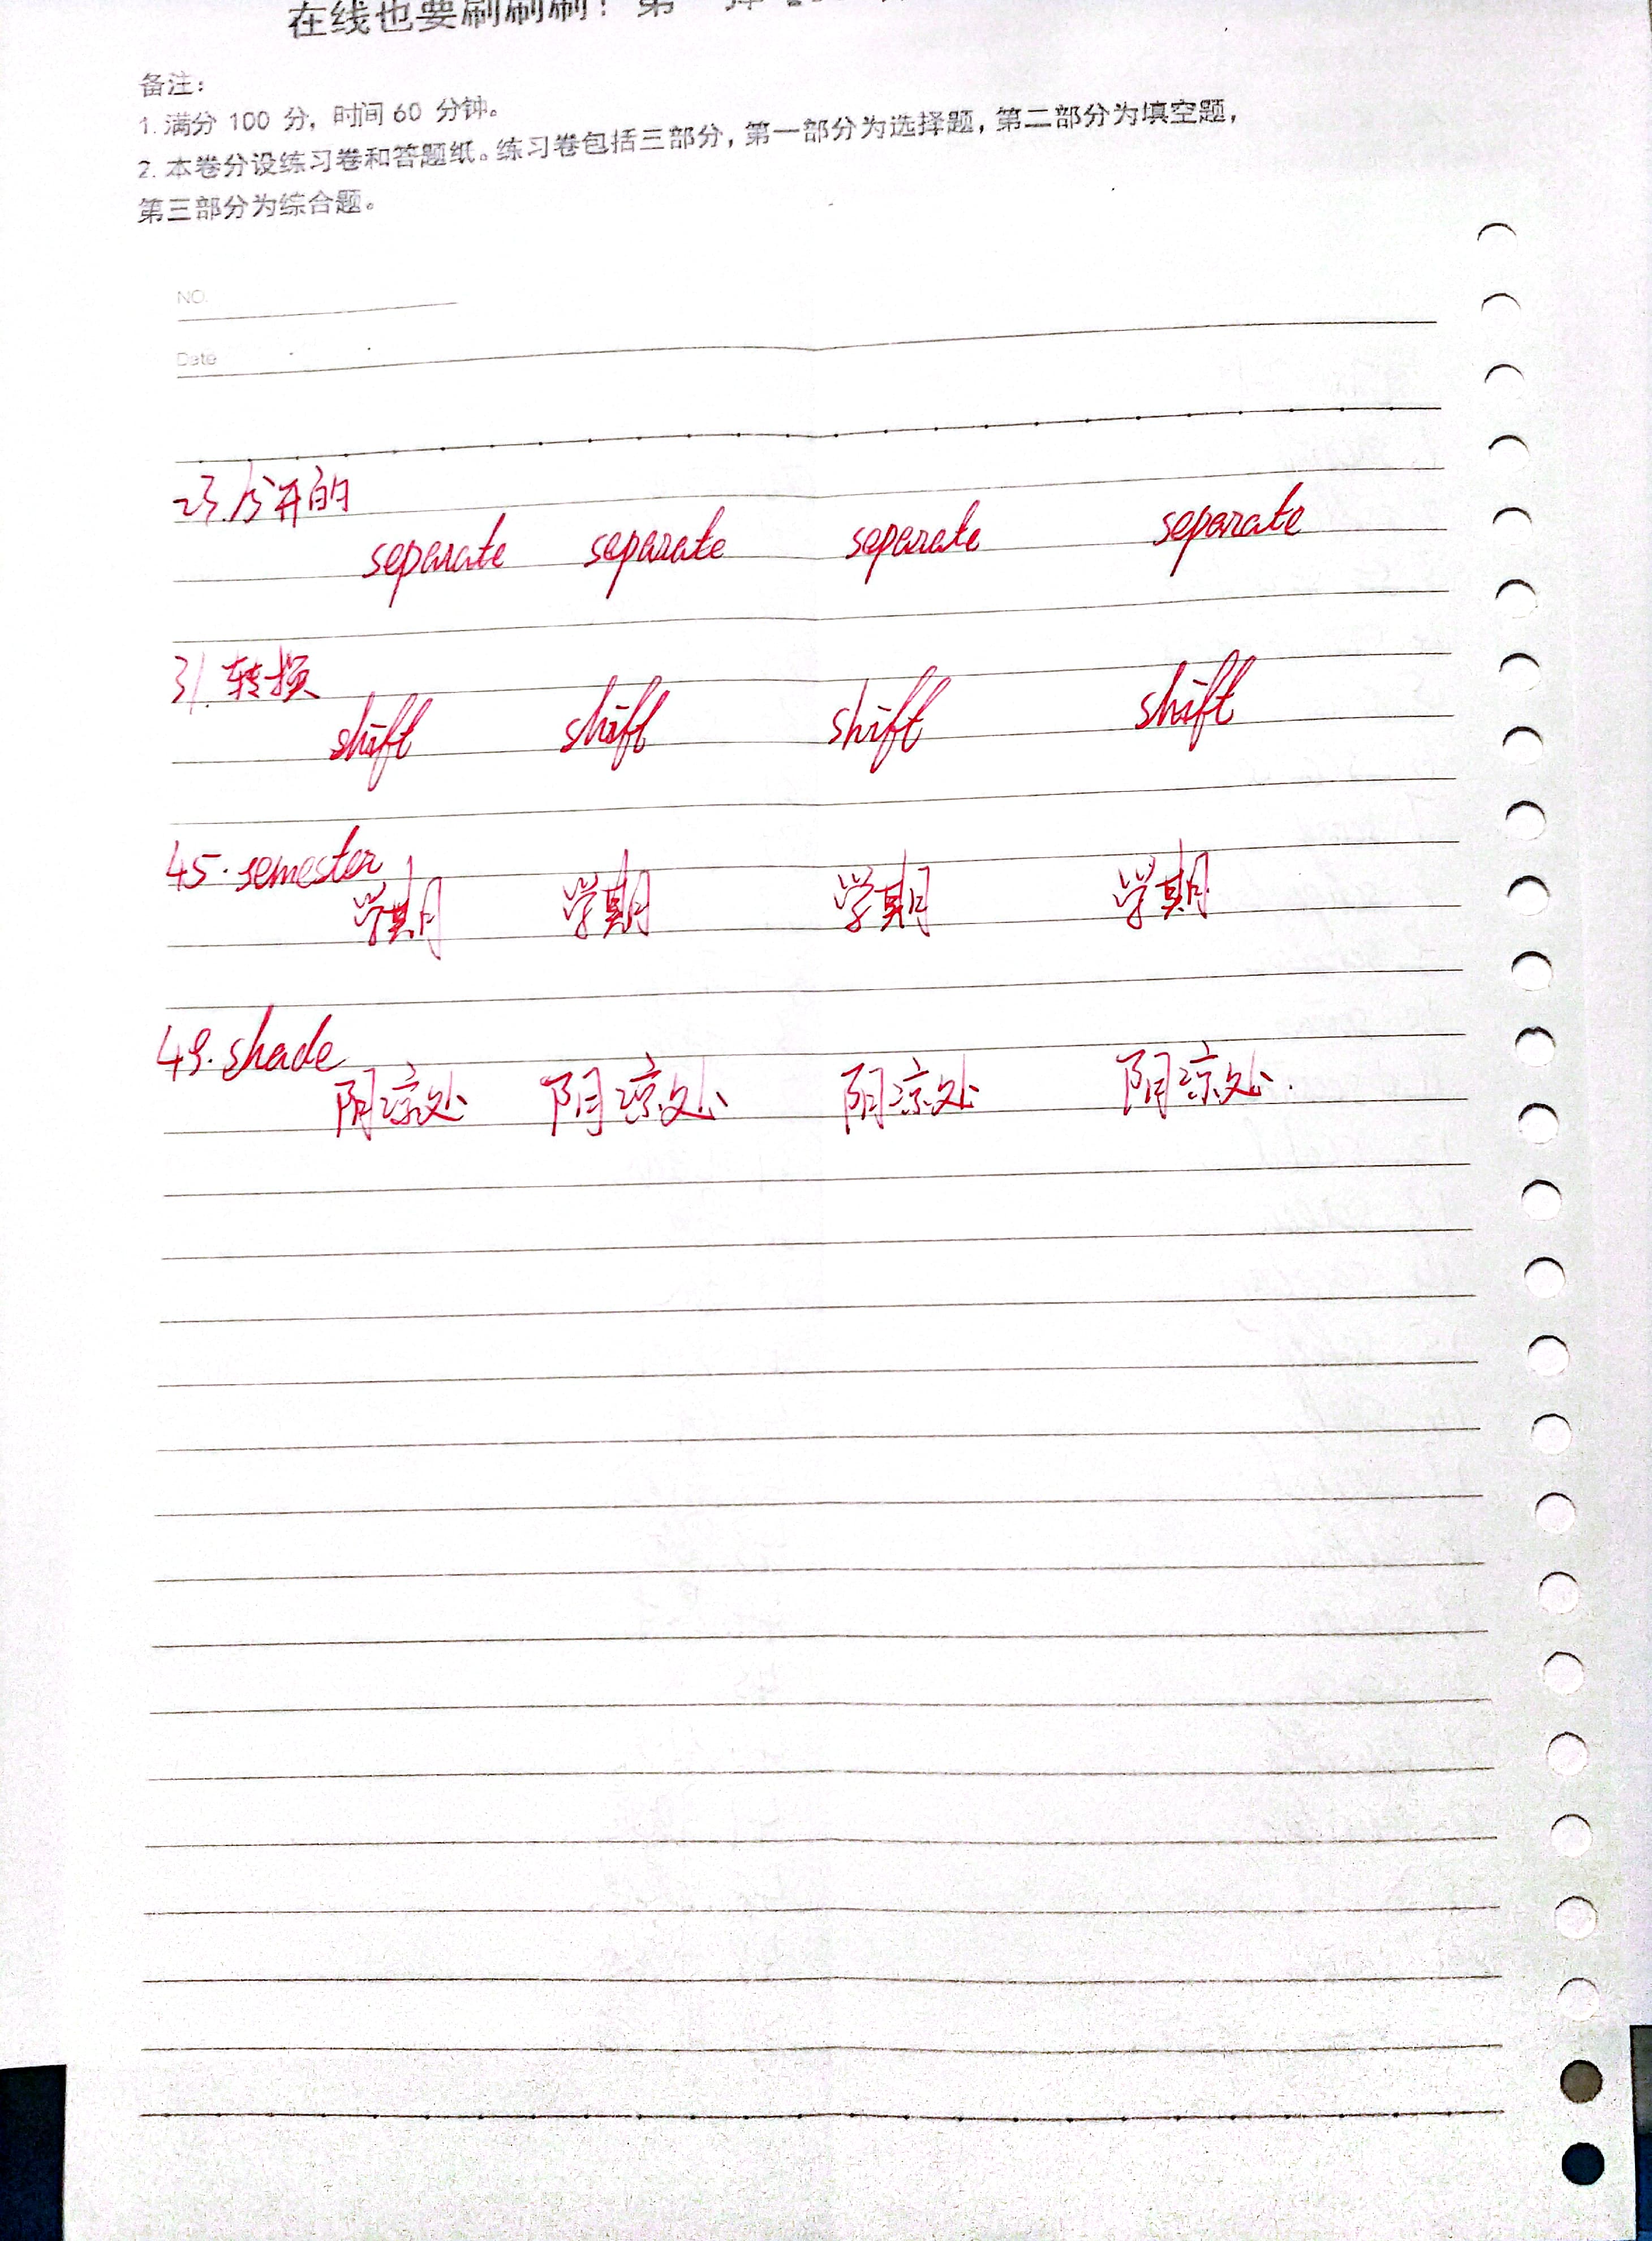 在线也要刷刷刷！第
备注：
1. 满分 100 分，时间 60 分钟。
2. 本卷分设练习卷和答题纸。练习卷包括三部分，第一部分为选择题，第二部分为填空题，
第三部分为综合题。
NO.
Date
23. 分开的
separate separate separate separate
31. 转换
shift shift shift shift
45. semester
学期 学期 学期 学期
49. shade
阴凉处 阴凉处 阴凉处 阴凉处.